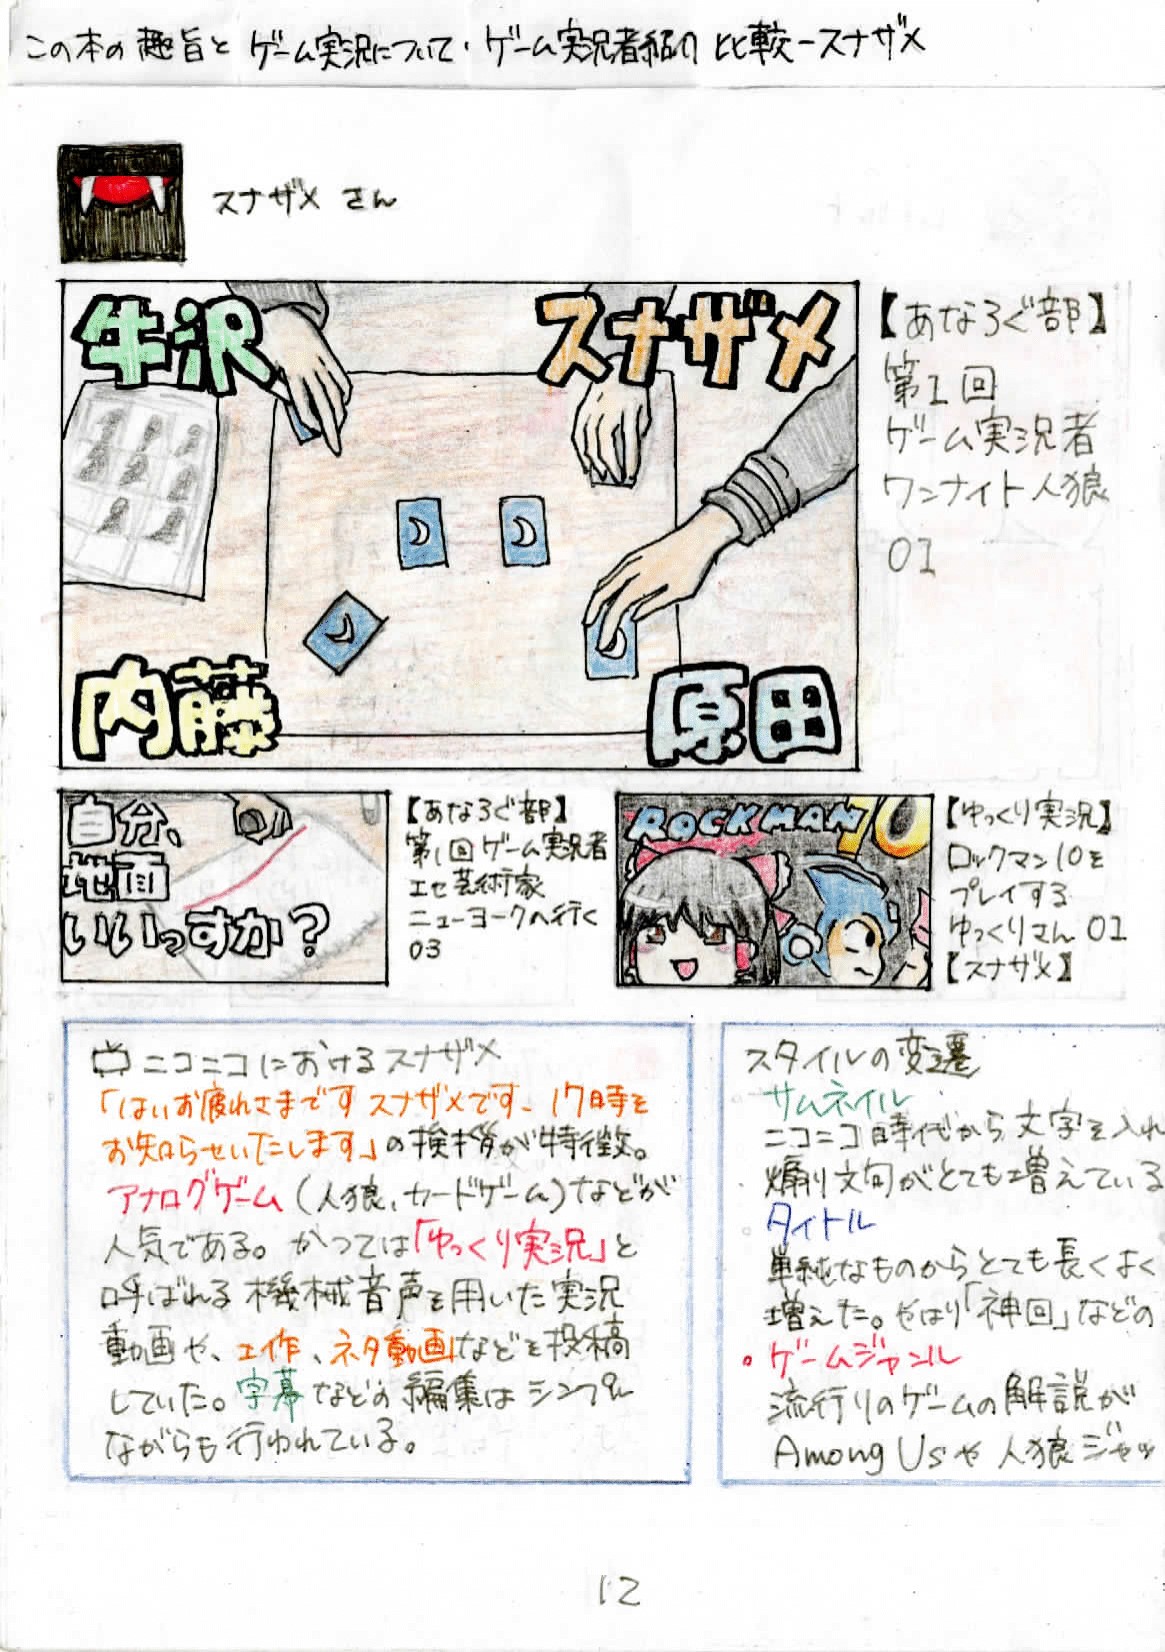 この本の趣旨と ゲーム実況について・ゲーム実況者紹介 比較ースナザメ
スナザメ さん
牛沢
スナザメ
内藤
原田
【あなろぐ部】
第1回
ゲーム実況者
ワンナイト人狼
01
自分、
地面
いいっすか？
【あなろぐ部】
第1回ゲーム実況者
エセ芸術家
ニューヨークへ行く
03
ROCKMAN
【ゆっくり実況】
ロックマン10を
プレイする
ゆっくりさん 01
【スナザメ】
ニコニコにおけるスナザメ
「はいお疲れさまです スナザメです、17時を
お知らせいたします」の挨拶が特徴。
アナログゲーム（人狼、カードゲーム）などが
人気である。かつては「ゆっくり実況」と
呼ばれる機械音声を用いた実況
動画や、工作、ネタ動画などを投稿
していた。字幕などの編集はシンプル
ながらも行われている。
スタイルの変遷
サムネイル
ニコニコ時代から文字を入れ
煽り文句がとても増えている
タイトル
単純なものからとても長くよく
増えた。やはり「神回」などの
・ゲームジャンル
流行りのゲームの解説が
Among Usや 人狼ジャッ
12